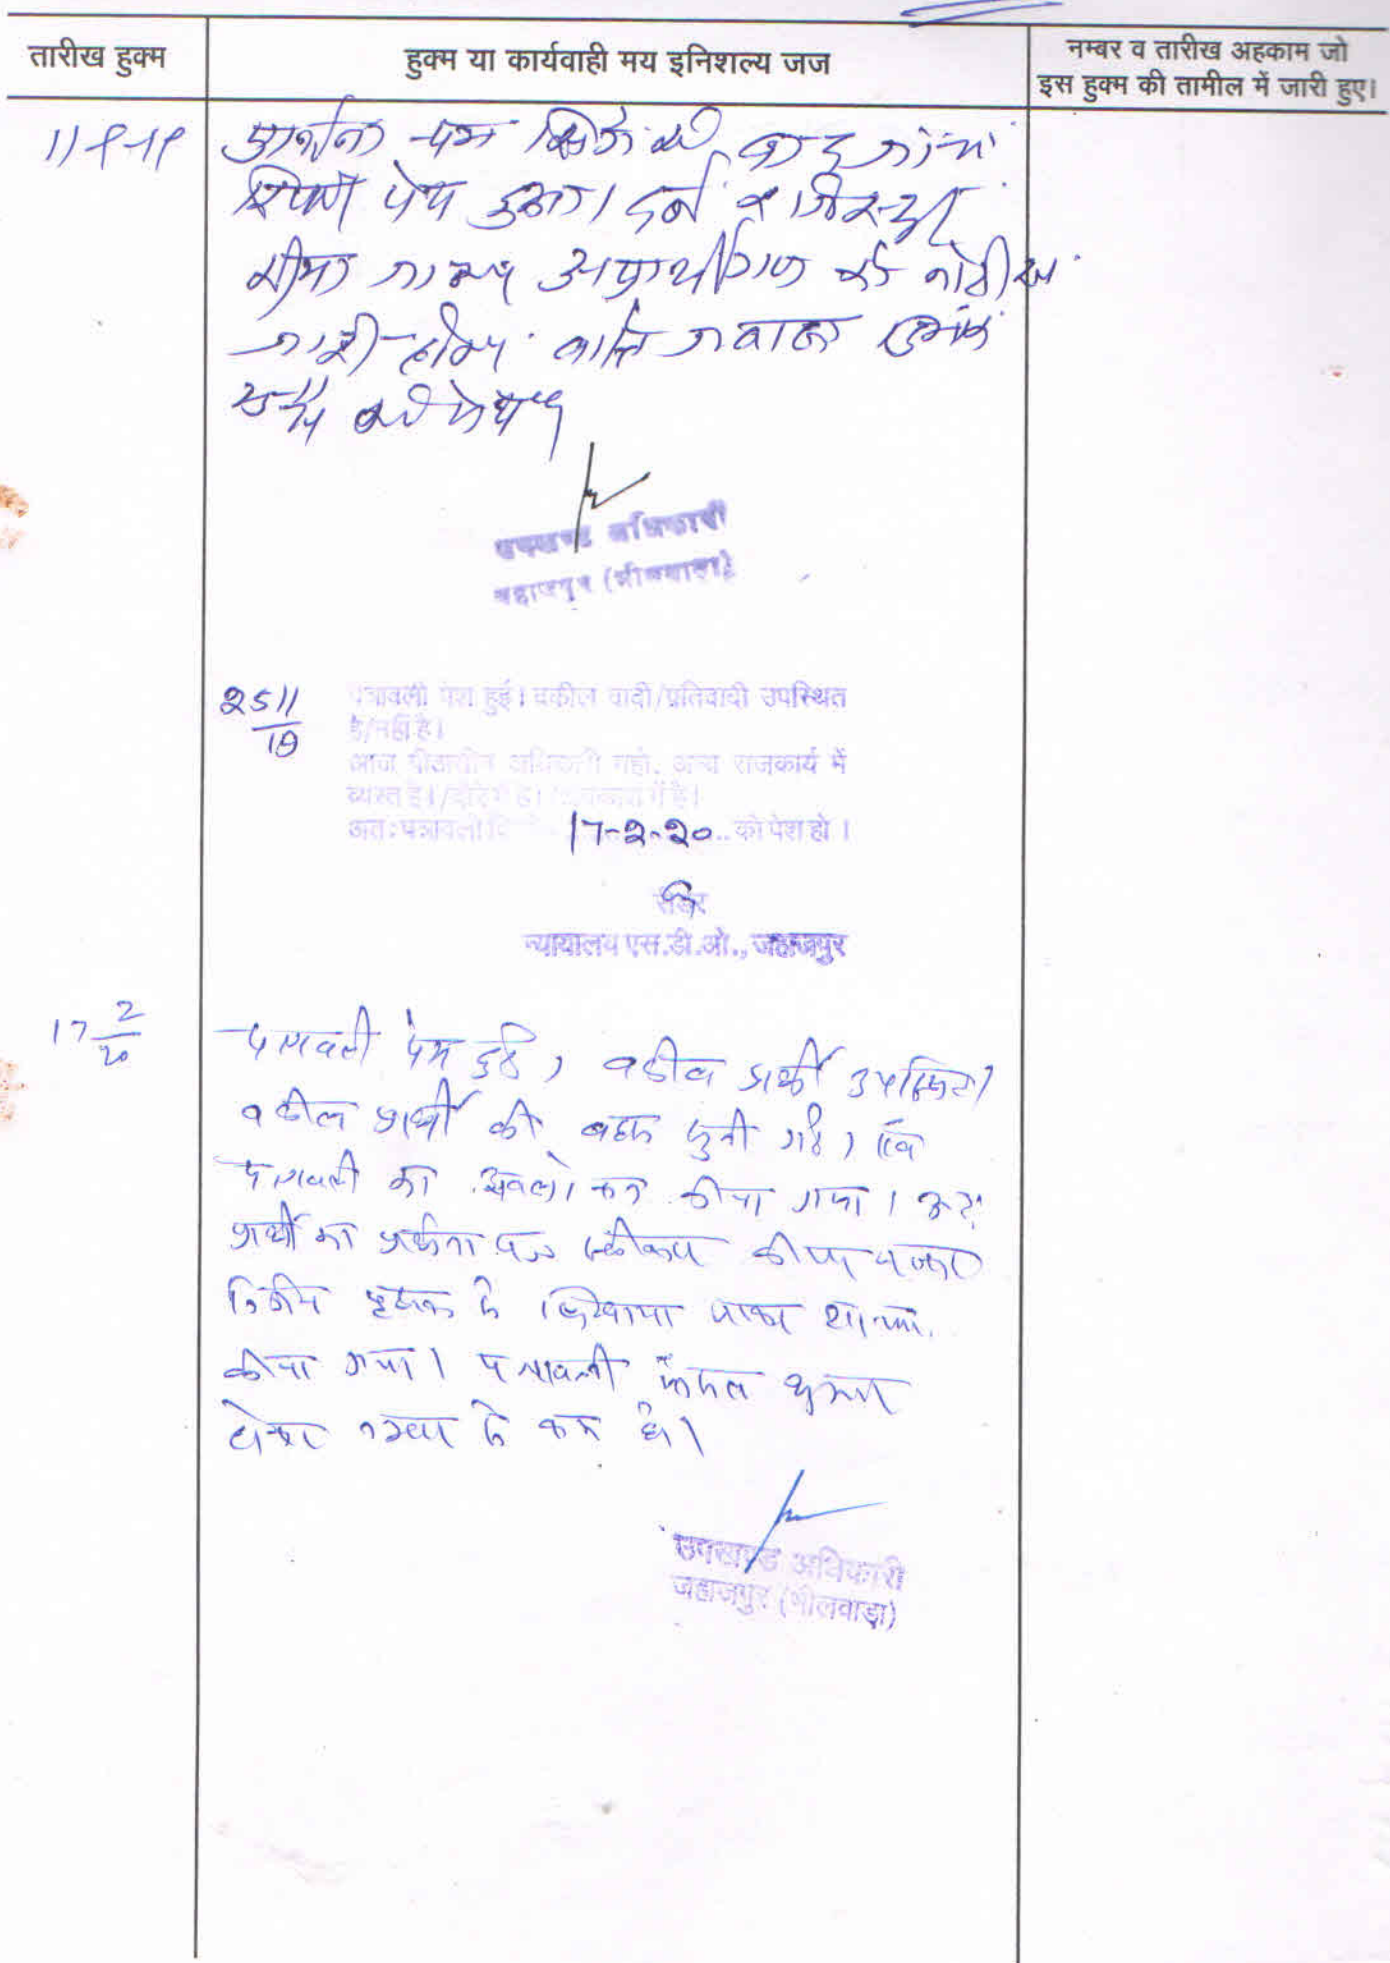 तारीख हुक्म
हुक्म या कार्यवाही मय इनिशल्य जज
नम्बर व तारीख अहकाम जो
इस हुक्म की तामील में जारी हुए।
प्रार्थना पत्र
पेश हुआ। दर्ज रजिस्टर
अप्रार्थीगण को नोटीस
जारी होकर वास्ते जवाब
को पेश हो
उपखण्ड अधिकारी
जहाजपुर (भीलवाड़ा)
25 11
19
पत्रावली पेश हुई। वकील वादी/प्रतिवादी उपस्थित
है/नहीं है।
आज पीठासीन अधिकारी महो. अन्य राजकार्य में
व्यस्त है।/दौरे में है।/अवकाश में है।
अतः पत्रावली 17-2-20 को पेश हो।
रीडर
न्यायालय एस.डी.ओ., जहाजपुर
17 2
20
पत्रावली पेश हुई, वकील प्रार्थी उपस्थित।
वकील प्रार्थी की बहस सुनी गई, एवं
पत्रावली का अवलोकन कीया गया।
प्रार्थी का प्रार्थना पत्र स्वीकार कीया जाकर
निर्णय पृथक से लिखाया जाकर
कीया गया। पत्रावली फैसल शुमार
होकर नम्बर से कम हो।
उपखण्ड अधिकारी
जहाजपुर (भीलवाड़ा)